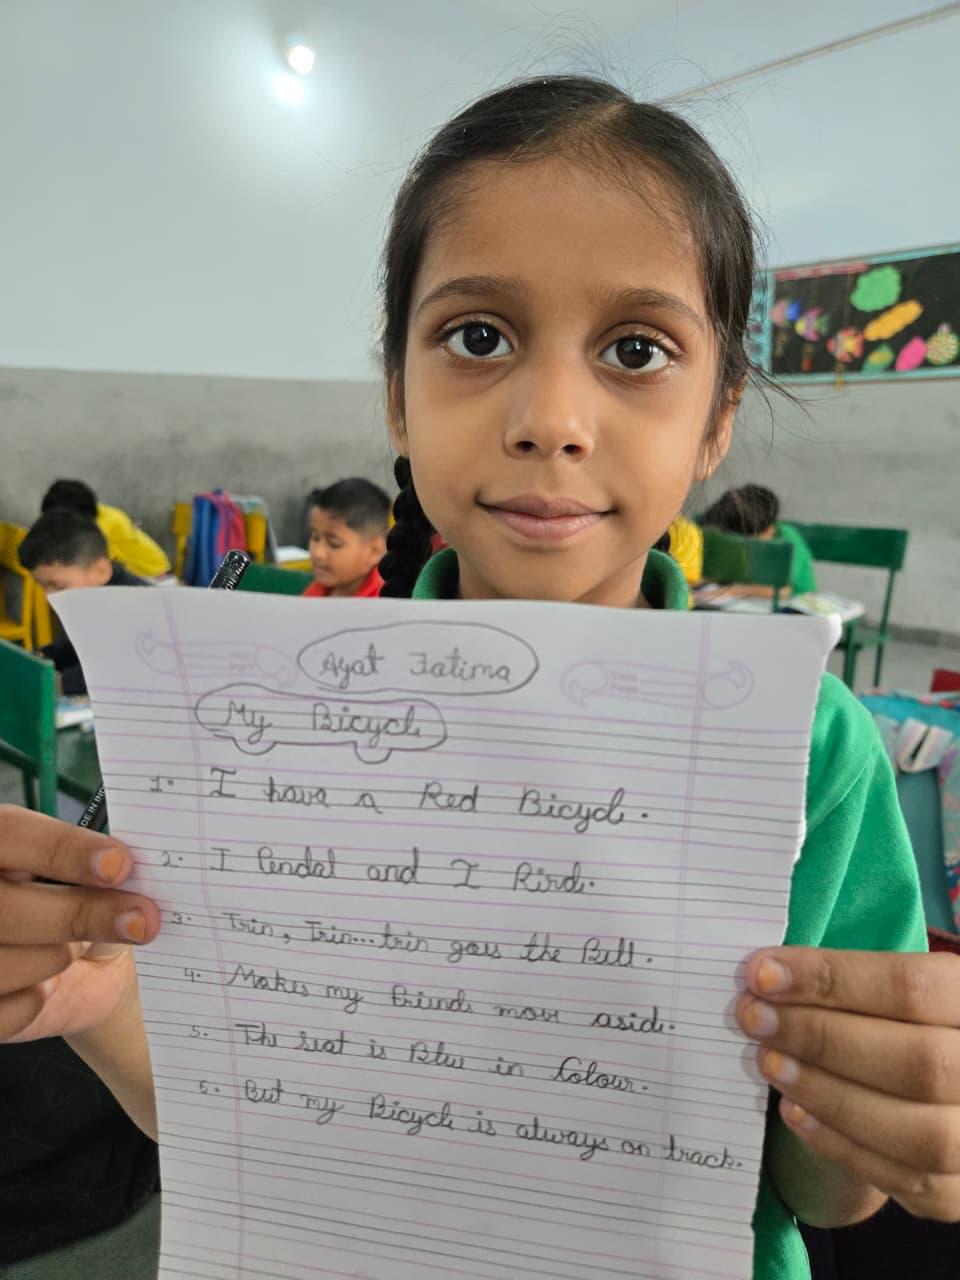 Ayat Fatima
My Bicycle
1. I have a Red Bicycle.
2. I Pendal and I Rird.
3. Trin, Trin...trin goes the Bell.
4. Makes my friends move aside.
5. The seat is Blue in Colour.
6. But my Bicycle is always on track.